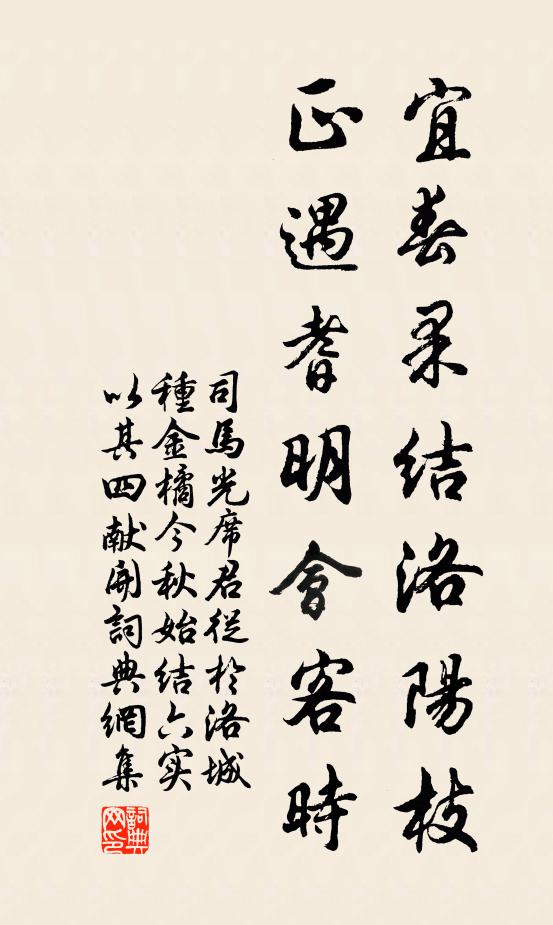 宜春果結洛陽枝
正遇耆明會客時
司馬光席君從於洛城
種金橘今秋始結六实
以其四献開詞典網集
詞典網印